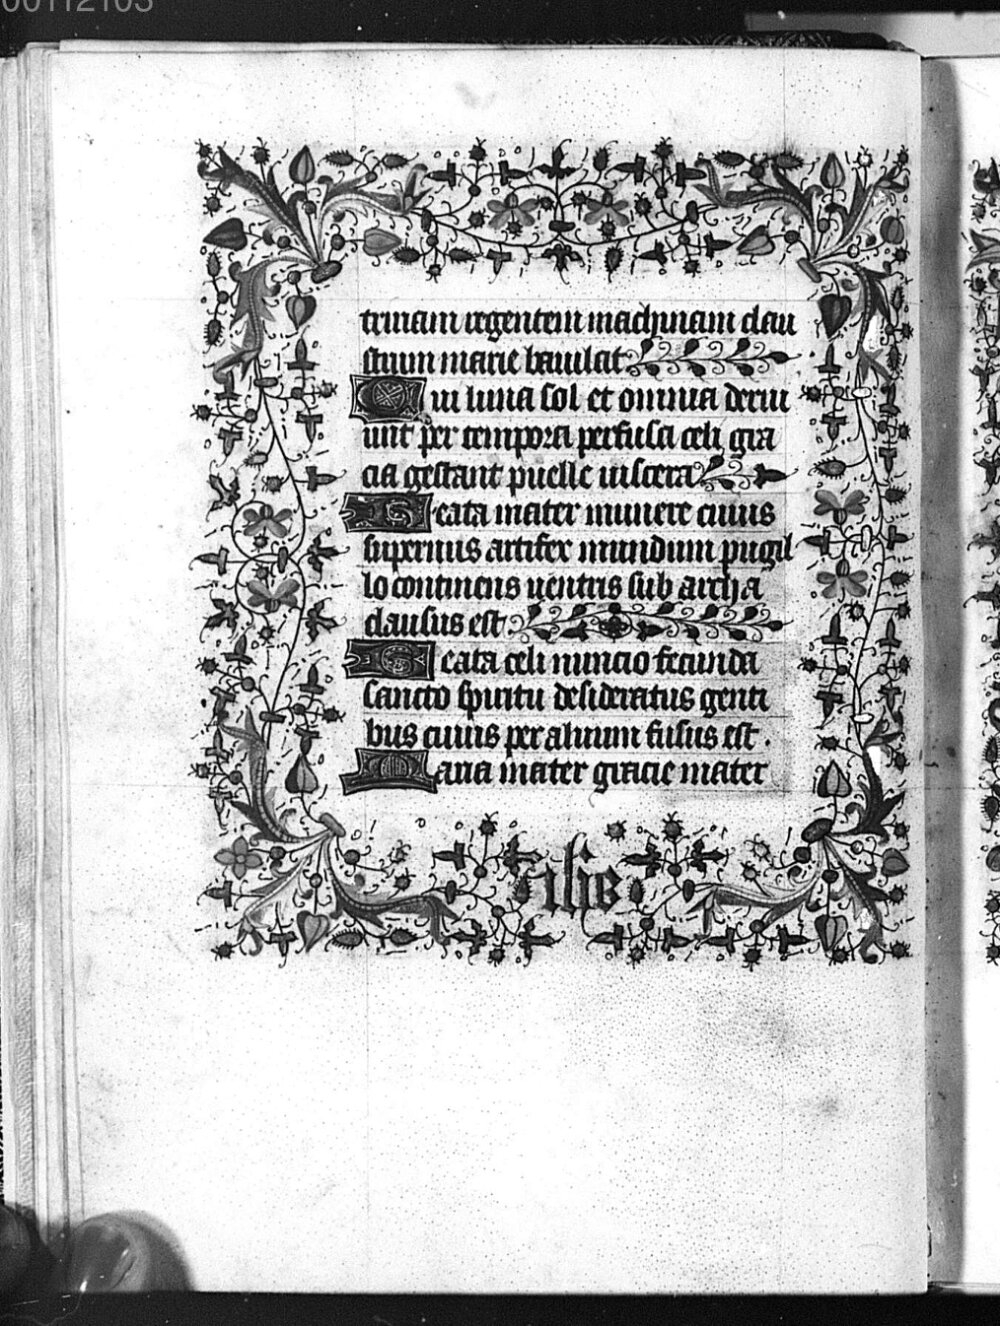 00112103
trinam regentem machinam clau
strum marie baiulat
Cui luna sol et omnia deriu
uit per tempora perfusa celi gra
cia gestant puelle uiscera
Beata mater munere cuius
supernus artifex mundum pugil
lo continens uentris sub archa
clausus est
Beata celi nuncio fecunda
sancto spiritu desideratus genti
bus cuius per aluum fusus est.
Maria mater gracie mater
ihs